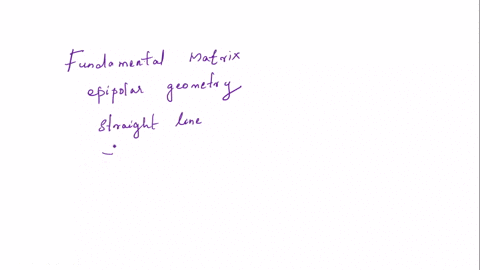 Fundamental Matrix
epipolar geometry
straight line